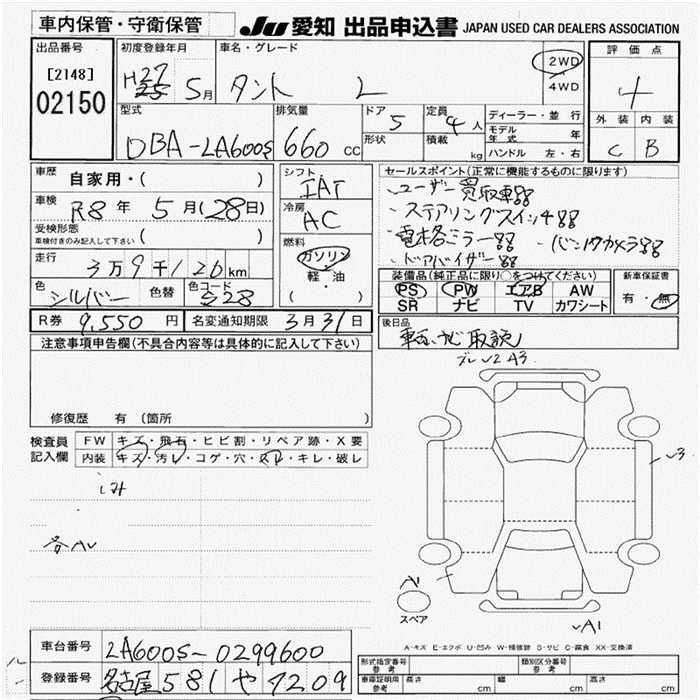 車内保管・守衛保管 JU 愛知 出品申込書 JAPAN USED CAR DEALERS ASSOCIATION
出品番号 初度登録年月 車名・グレード 2WD 評価点
[2148] H27 5月 タント L 4WD 4
02150
型式 排気量 ドア 5 定員 4人 ディーラー・並行 外装 内装
DBA-LA600S 660cc 形状 積載 kg モデル年式 年 C B
ハンドル 左・右
車歴 自家用・( ) シフト IAT セールスポイント(正常に機能するものに限ります)
車検 R8年 5月(28日) 冷房 AC ・ユーザー買取車!!
・ステアリングスイッチ!!
受検形態 車検付きのみ記入して下さい ( ) 燃料 ・電格ミラー!! ・バックカメラ!!
走行 3万9千126km ガソリン 軽・油 ( ) ・ドアバイザー!!
装備品(純正品に限り○をつけてください) 新車保証書
色 シルバー 色替 色コード S28 PS PW エアB AW 有・無
SR ナビ TV カワシート
R券 9,550円 名変通知期限 3月31日 後日品
注意事項申告欄(不具合内容等は具体的に記入して下さい) 車載ナビ取説
修復歴 有 (箇所
検査員 FW キズ・飛石・ヒビ割・リペア跡・X要
記入欄 内装 キズ・汚レ・コゲ・穴・スレ・キレ・破レ
シミ
各AU
A3
A1
スペア
A1
A-キズ E-エクボ U-凹み W-補修跡 S-サビ C-腐食 XX-交換済
車台番号 LA600S-0299600
登録番号 名古屋 581 や 7209
形式指定番号 参考 類別区分番号 参考
車庫証明用 参考 長さ cm 幅 cm 高さ cm